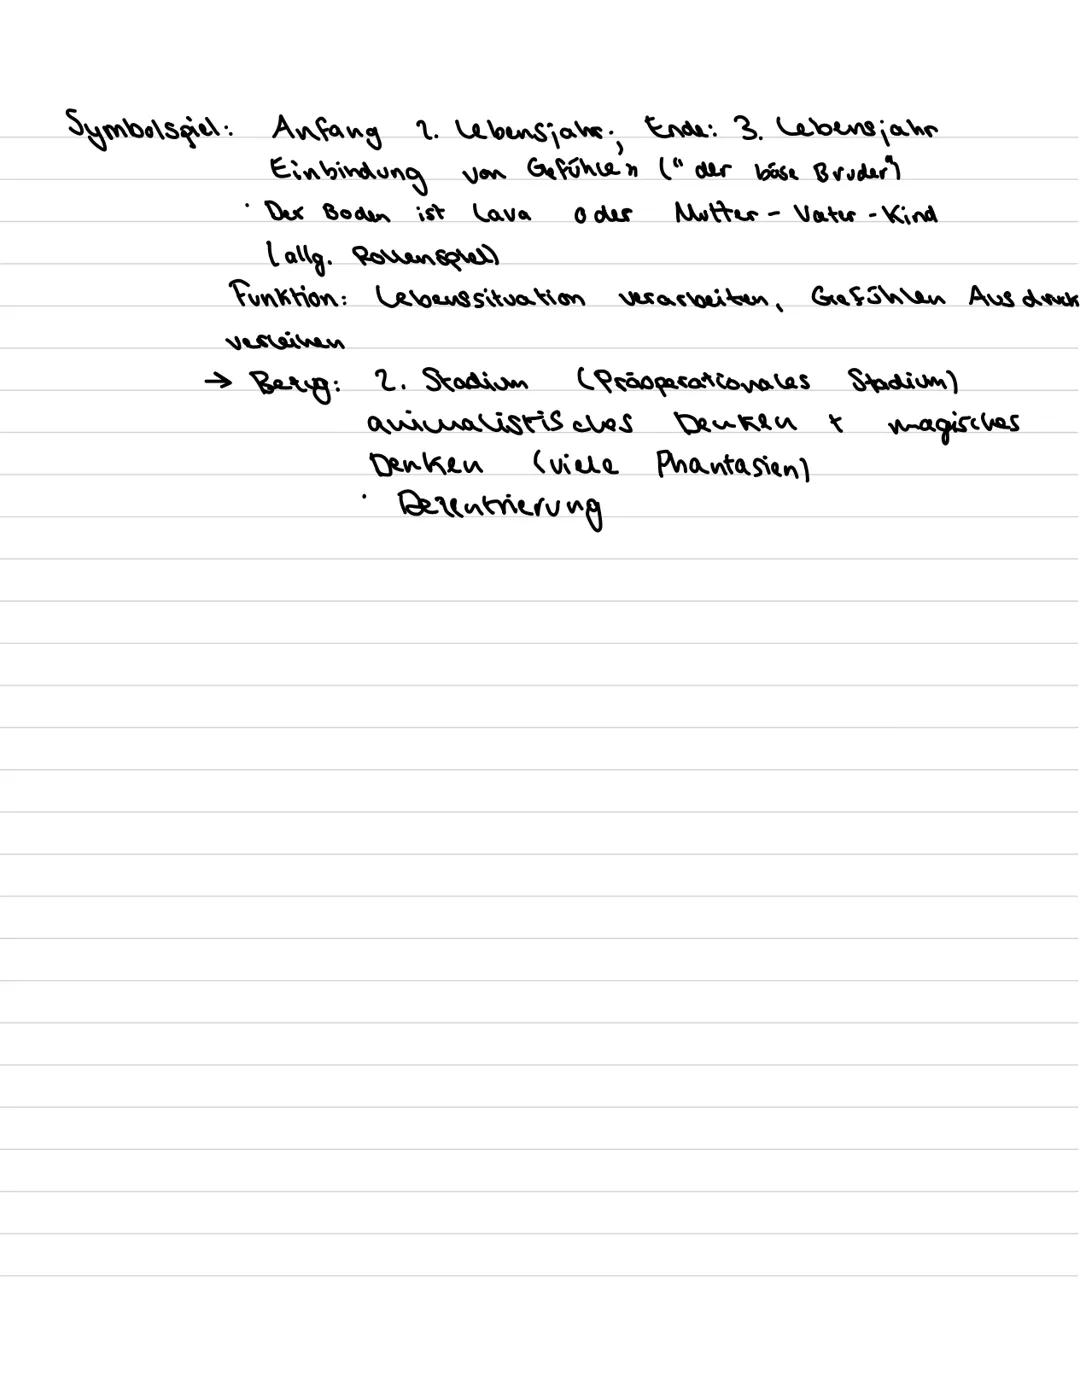 Symbolspiel: Anfang 2. Lebensjahr; Ende: 3. Lebensjahr
Einbindung von Gefühlen ("der böse Bruder")
· Der Boden ist Lava oder Mutter-Vater-Kind
(allg. Rollenspiel)
Funktion: Lebenssituation verarbeiten, Gefühlen Ausdruck
verleihen
→ Bezug: 2. Stadium (Präoperationales Stadium)
animalistisches Denken + magisches
Denken (viele Phantasien)
· Dezentrierung